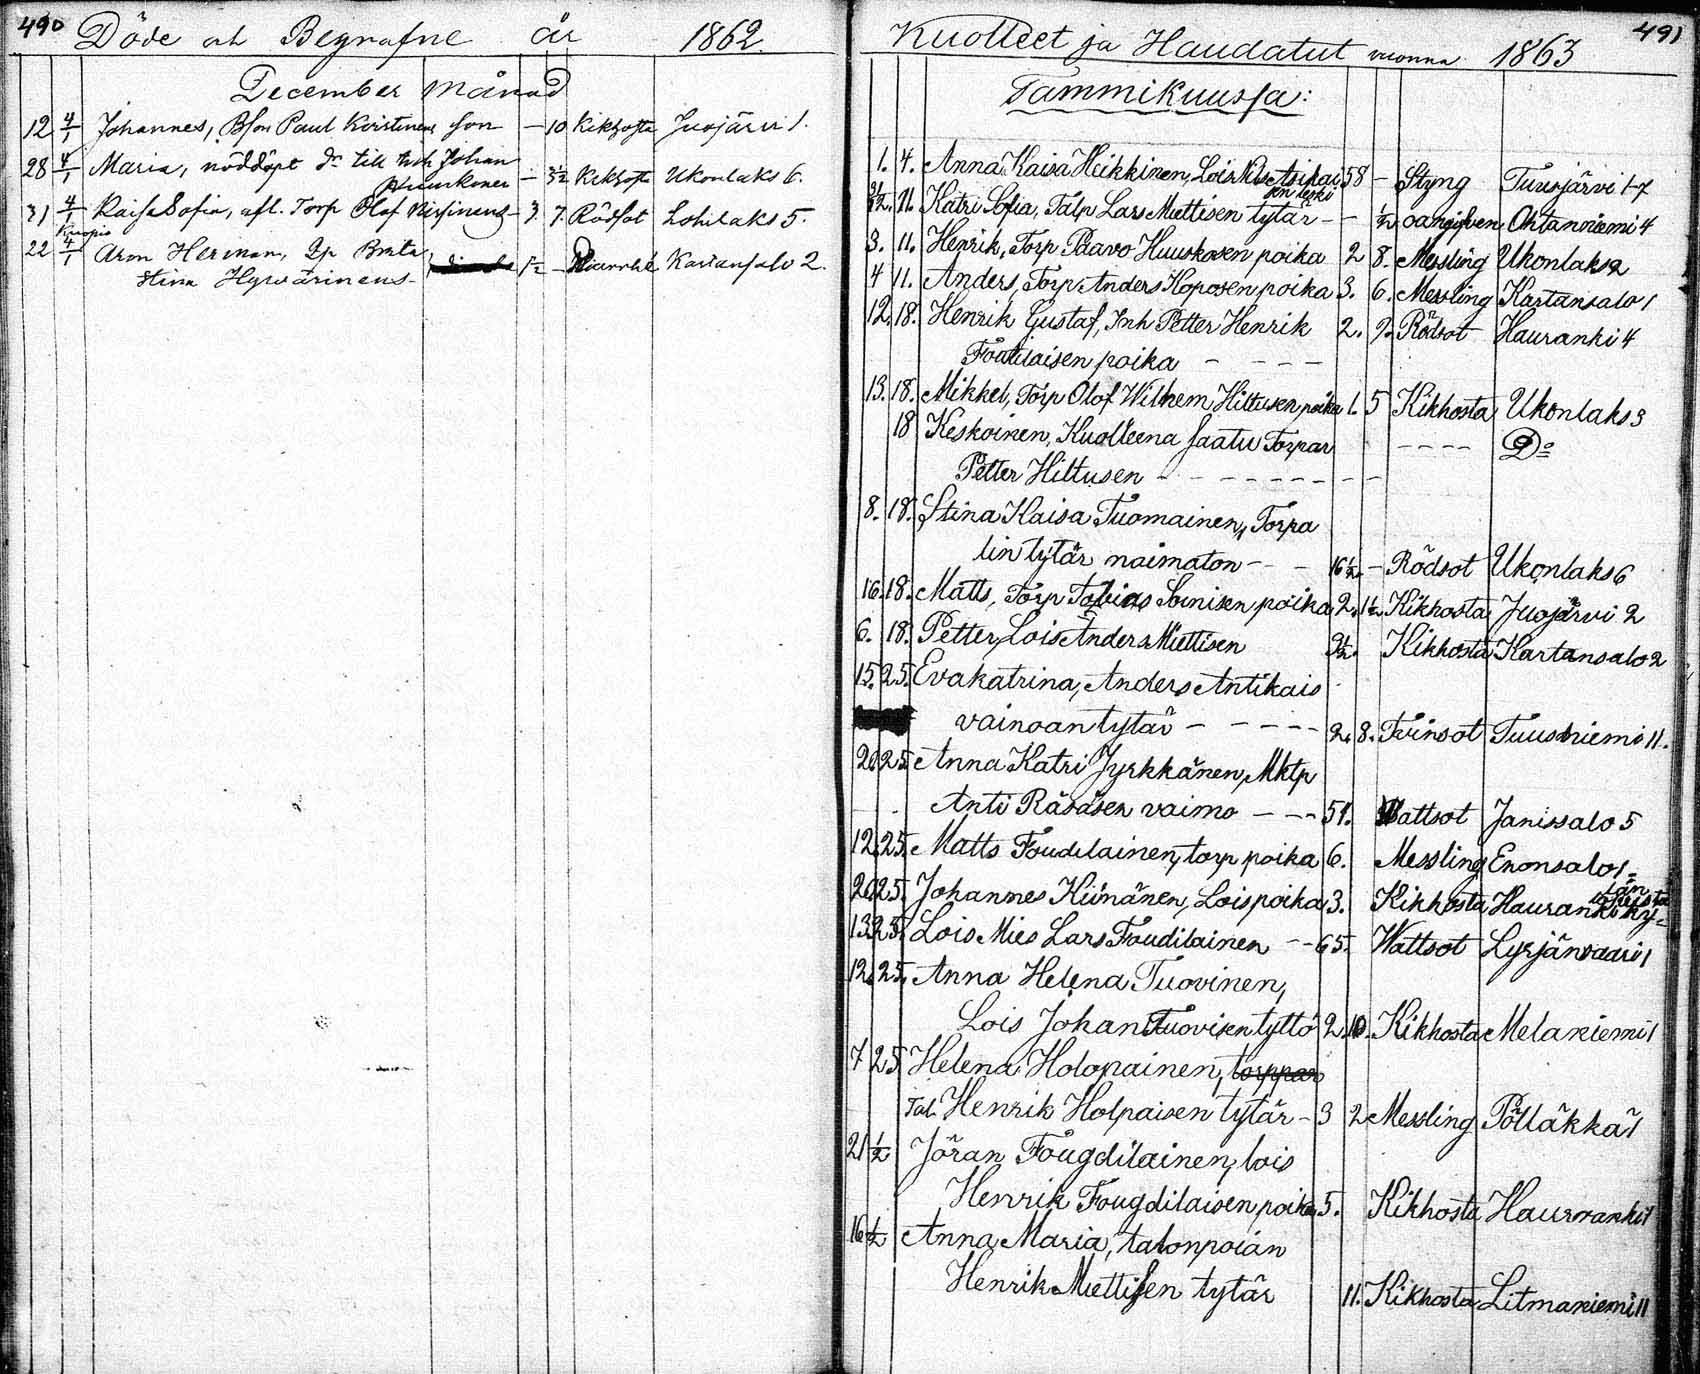 490 Döde och Begrafne år 1862.
December månad
12 4/1 Johannes, Bson Paul Koistinens son — 10 Kikhosta Juojärvi 1.
28 4/1 Maria, nöddöpt dr till Inh Johan
Huuskonen — 3½ Kikhosta Ukonlaks 6.
31 4/1 Kaisa Sofia, afl. Torp Olof — 3. 7. Rödsot Lohilaks 5.
Kuopio
22 4/1 Aron Herman, Brita
Stina Hyvärinens 1½ — Kartansalo 2.
491
Kuolleet ja Haudatut vuonna 1863
Tammikuussa:
1. 4. Anna Kaisa Heikkinen, Lois 58 — Styng Tuusjärvi 17
leski
31/12. 11. Katri Sofia, Talp Lars Miettisen tytär — — ½ oangifven Ohtaanniemi 4
3. 11. Henrik, Torp Paavo Huuskosen poika 2 8. Messling Ukonlaks 2
4 11. Anders, Torp Anders Koposen poika 3. 6. Messling Kartansalo 1
12. 18. Henrik Gustaf, Inh Petter Henrik 2. 9. Rödsot Hauranki 4
Foudilaisen poika — — — —
13. 18. Mikkel, Torp Olof Wilhem Hiltusen poika 1. 5 Kikhosta Ukonlaks 3
18 Keskoinen, Kuolleena saatu Torpar — — — — Do
Petter Hiltusen — — — — — — — —
8. 18. Stina Kaisa Tuomainen, Torpa
lin tytär naimaton — — — 16½. — Rödsot Ukonlaks 6
16. 18. Matts, Torp Tobias Soinisen poika 2. 1½. Kikhosta Juojärvi 2
6. 18. Petter, Lois Anders Miettisen 9½. Kikhosta Kartansalo 2
15. 25. Evakatrina, Anders Antikais
vainoan tytär — — — — — 2. 8. Tvinsot Tuusniemi 11.
20. 25. Anna Katri Jyrkkänen, Mktp
Anti Räsäsen vaimo — — — 51. Wattsot Janissalo 5
12. 25. Matts Foudilainen, torp poika 6. Messling Enonsalo 1
20. 25. Johannes Kiinänen, Lois poika 3. Kikhosta Hauranki
13. 25. Lois Mies Lars Foudilainen — — 65. Wattsot Lyrjänvaari 1
12. 25. Anna Helena Tuovinen,
Lois Johan Tuovisen tyttö 2. 10. Kikhosta Melaniemi 1
7 25 Helena Holopainen, torppar
Tal. Henrik Holpaisen tytär — 3 2 Messling Pölläkkä 1
21 1/2 Jöran Fougdilainen, lois
Henrik Fougdilaisen poika 5. Kikhosta Hauranki 1
16 1/2 Anna Maria, talonpoian
Henrik Miettisen tytär 11. Kikhosta Litmaniemi 11